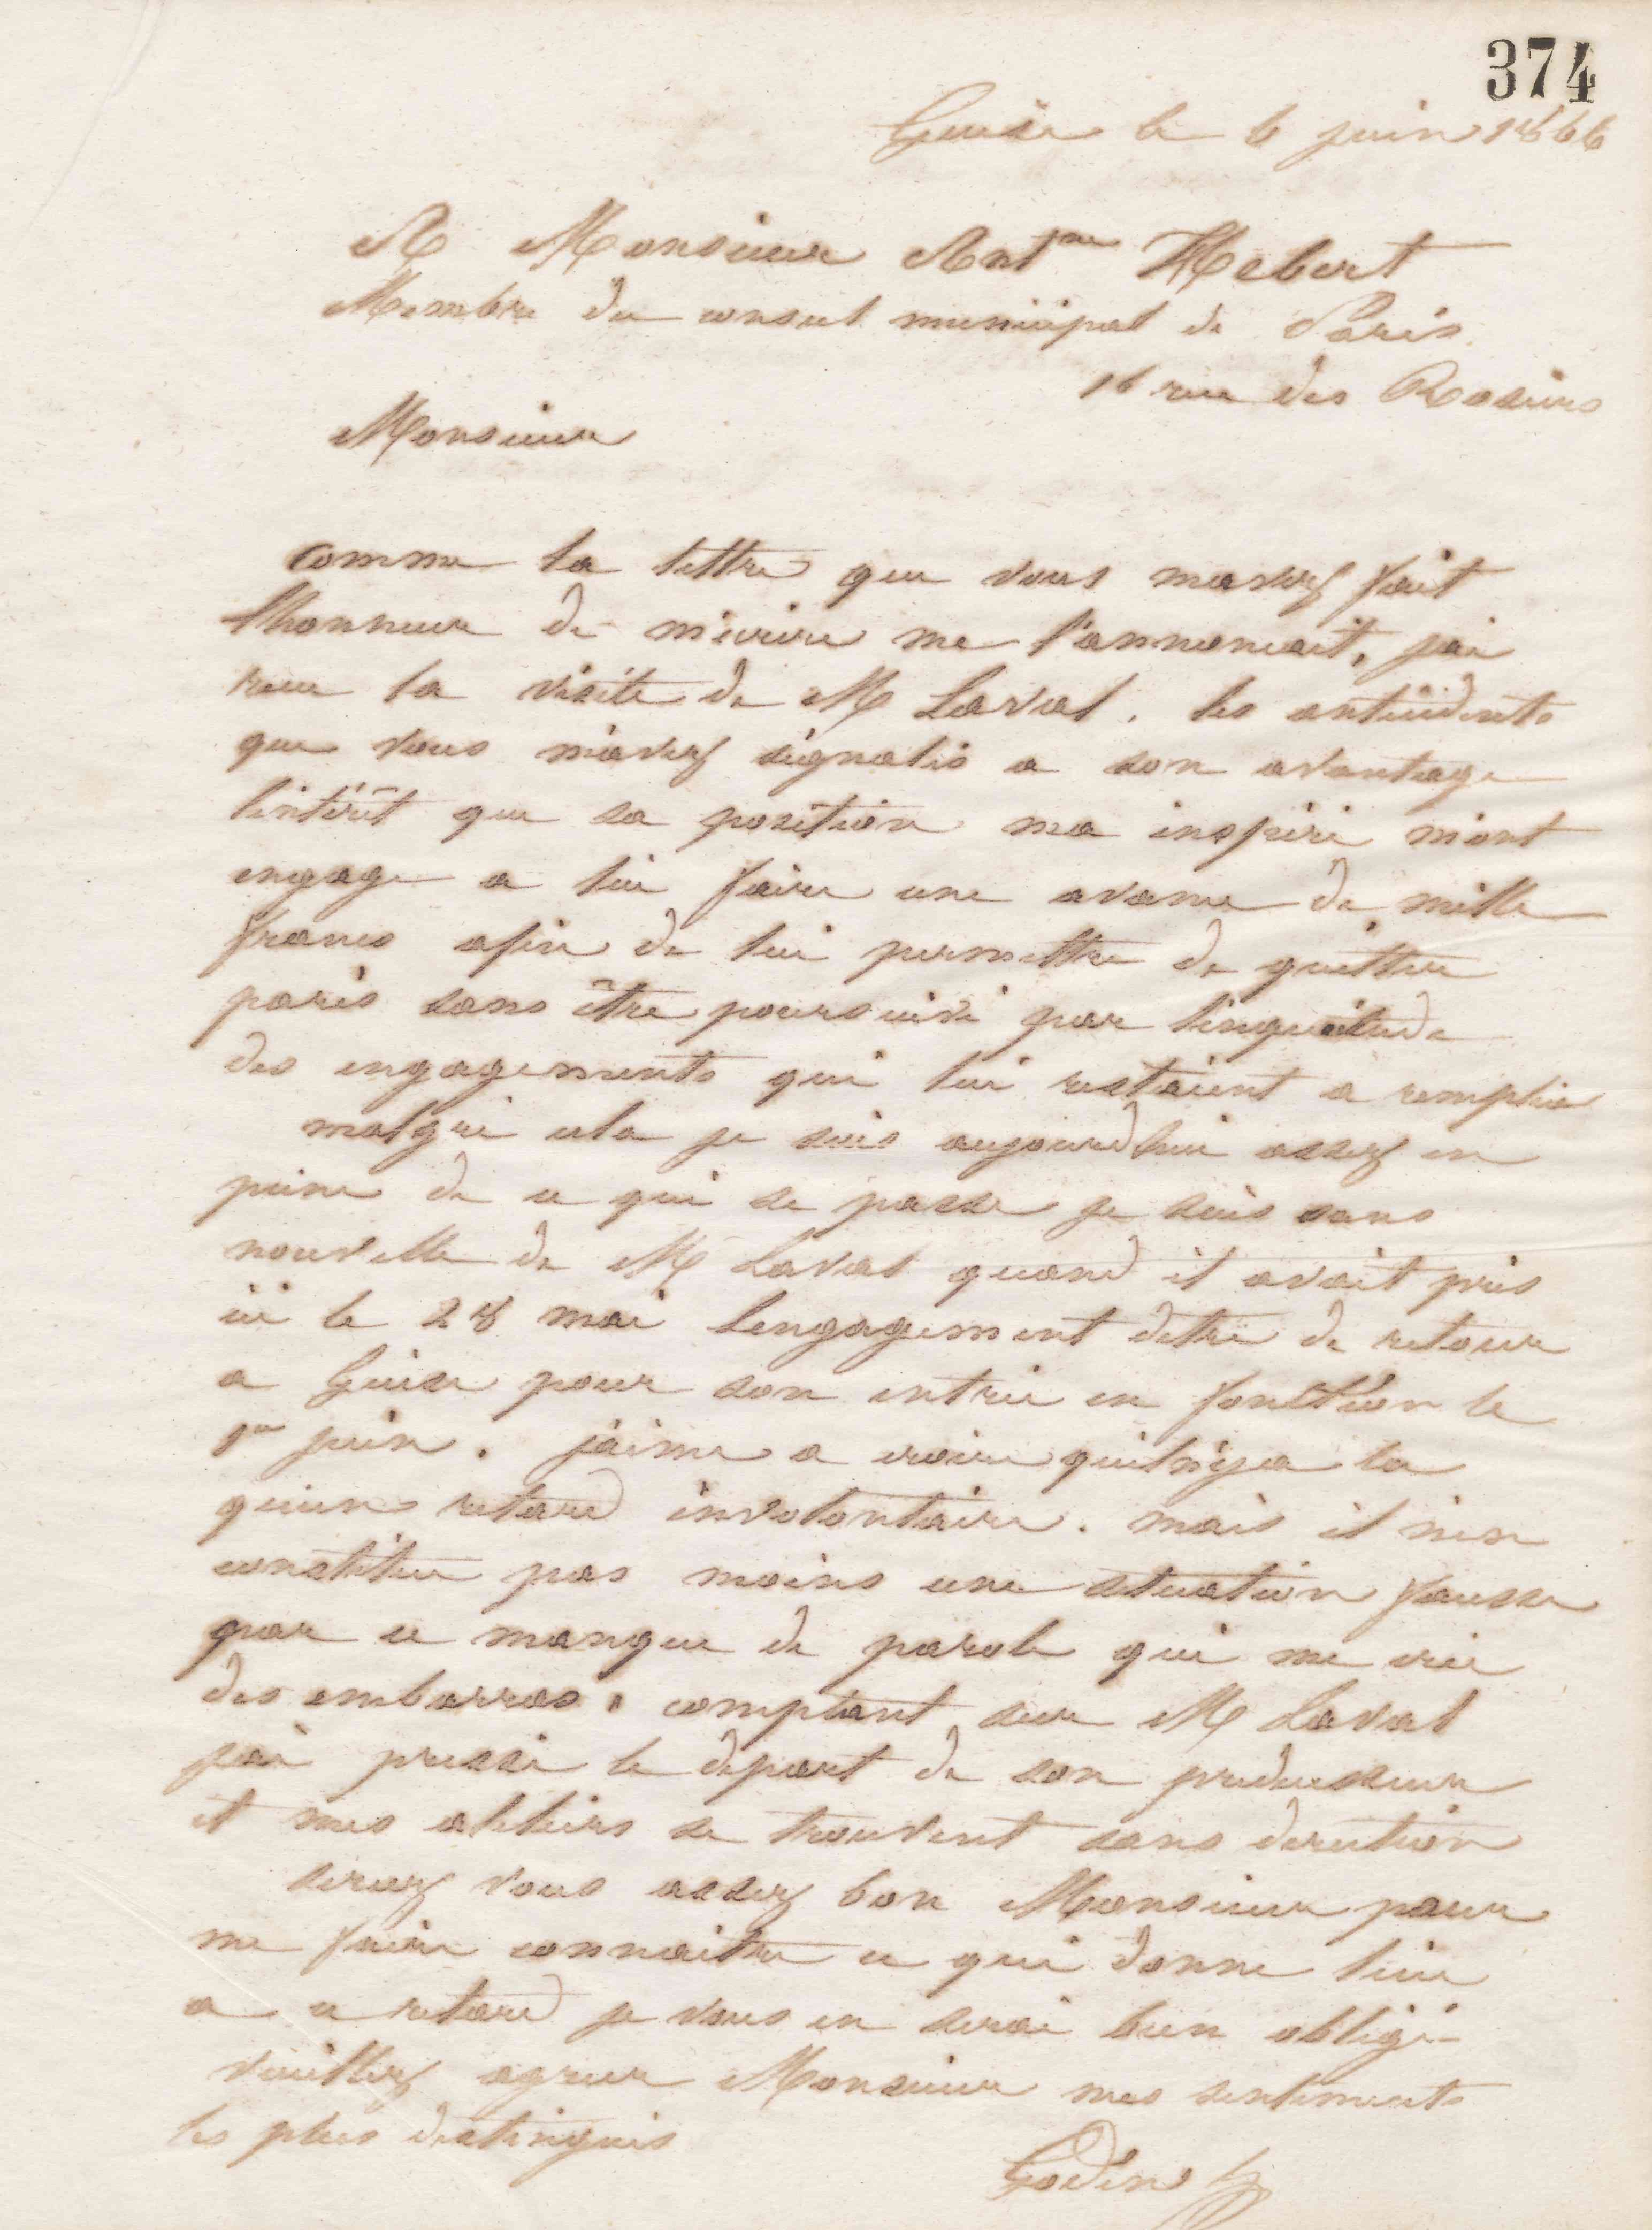 374
Guise le 6 juin 1866
A Monsieur Antne Hebert
Membre du conseil municipal de Paris.
16 rue des Rosiers
Monsieur
comme la lettre que vous mavez fait
lhonneur de m'ecrire me l'annoncait, jai
recu la visite de M Laval. les antécédents
que vous m'avez signalés a son avantage
lintérêt que sa position ma inspiré m'ont
engagé a lui faire une avance de mille
francs afin de lui permettre de quitter
paris sans être poursuivi par linquiétude
des engagements qui lui restaient a remplir
malgré cela je suis aujourdhui assez en
peine de ce qui se passe je suis sans
nouvelle de M Laval quand il avait pris
ici le 28 mai lengagement detre de retour
a Guise pour son entrée en fonction le
1er juin. j'aime a croire quil n'ya la
qu'un retard involontaire. mais il n'en
constitue pas moins une situation fausse
par ce manque de parole qui me crée
des embarras. comptant sur M Laval
j'ai pressé le départ de son predecesseur
et mes atteliers se trouvent sans direction
serez vous assez bon Monsieur pour
me faire connaitre ce qui donne lieu
a ce retard je vous en serai bien obligé
veuillez agreer Monsieur mes sentiments
les plus distingués
Godin